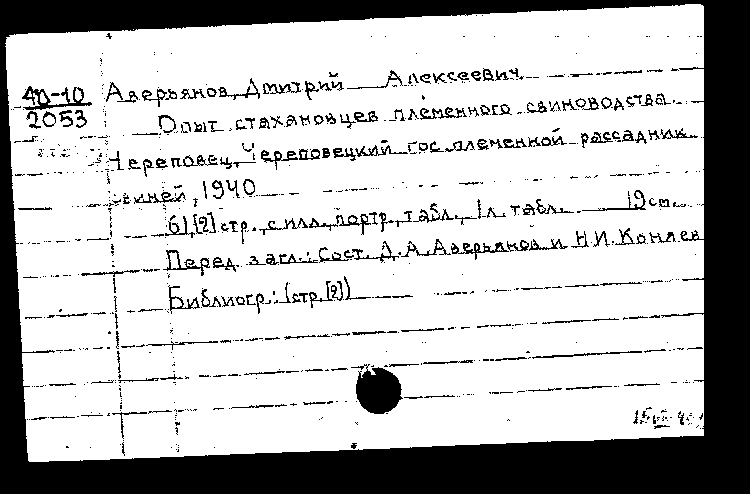 40-10 Аверьянов, Дмитрий Алексеевич
2053 Опыт стахановцев племенного свиноводства.
Череповец, Череповецкий гос. племенной рассадник
свиней, 1940
61, [2] стр., с илл., портр., табл., 1 л. табл. 19 см.
Перед загл.: Сост. Д. А. Аверьянов и Н. И. Коняев
Библиогр.: (стр. [2])